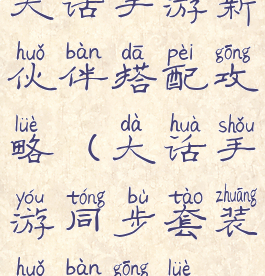 大话手游新
huǒ bàn dā pèi gōng
伙伴搭配攻
lüè dà huà shǒu
略（大话手
yóu tóng bù tào zhuāng
游同步套装
huǒ bàn gōng lüè